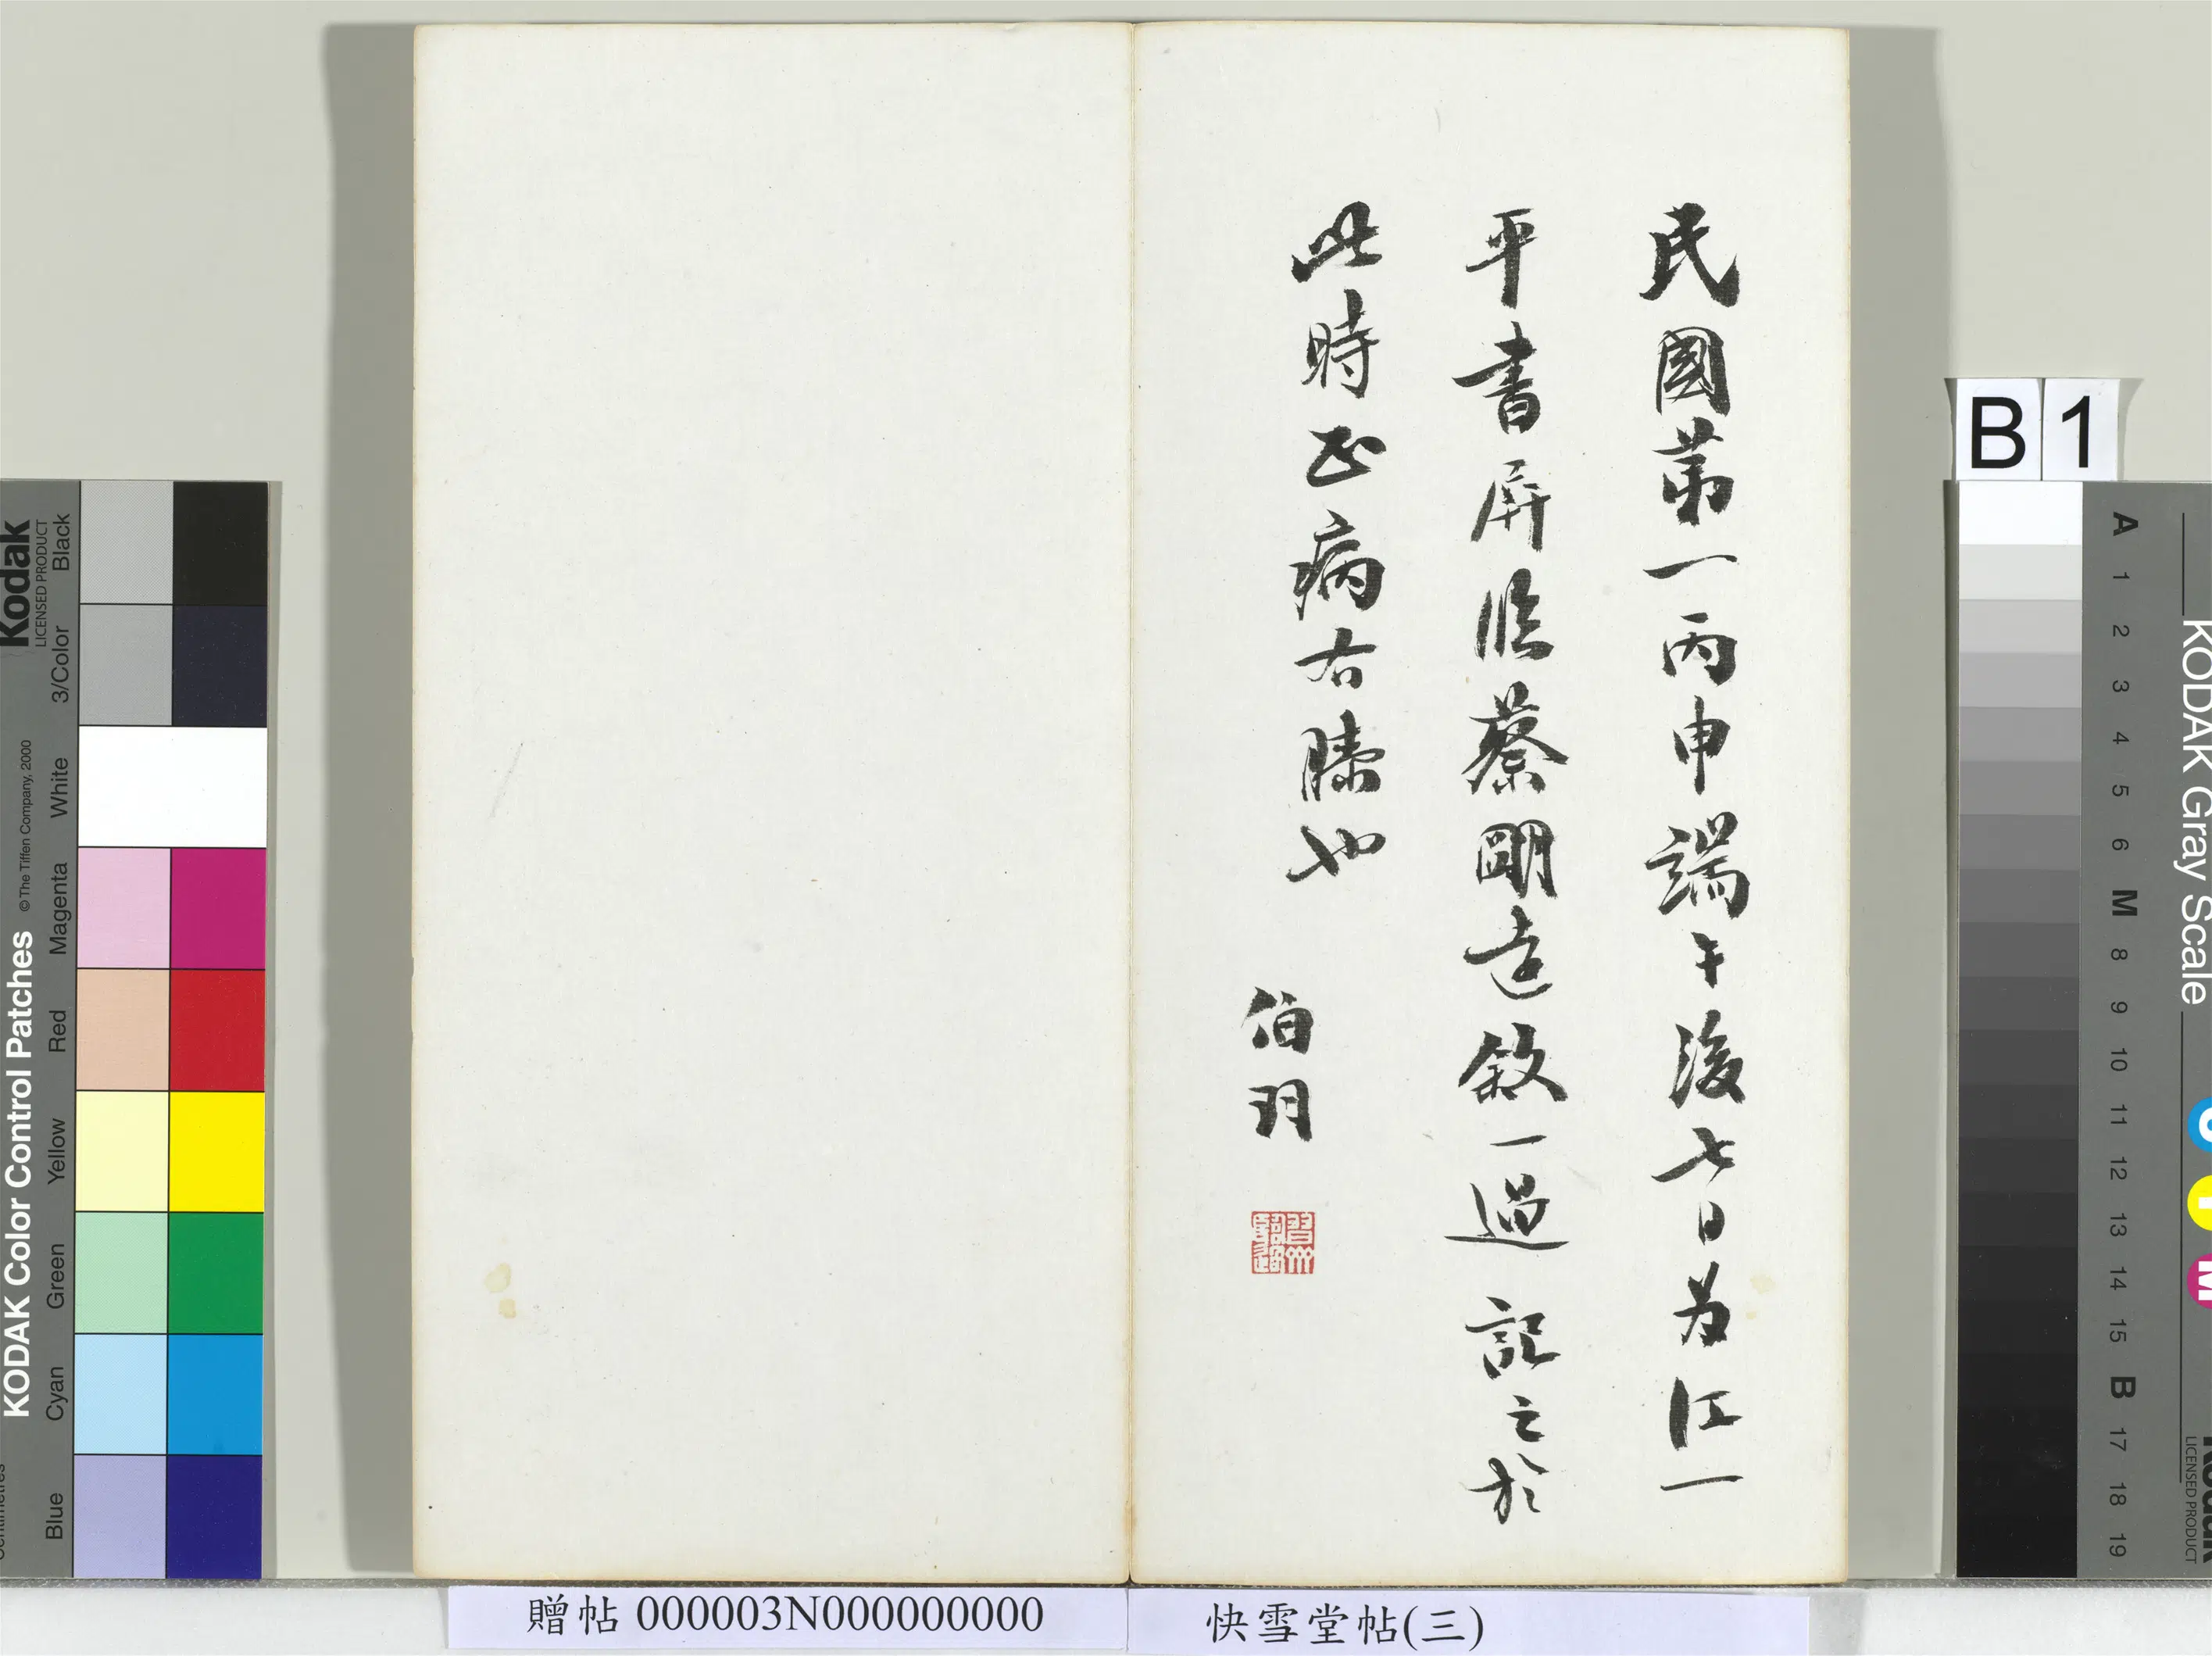 民國第一丙申端午後七日為江一
平書屏臨蔡明遠敘一過記之於
此時正病右膝也
伯羽
贈帖 000003N000000000
快雪堂帖(三)
KODAK Color Control Patches
© The Tiffen Company, 2000
Kodak
LICENSED PRODUCT
Black
3/Color
White
Magenta
Red
Yellow
Green
Cyan
Blue
B 1
KODAK Gray Scale
A 1 2 3 4 5 6 M 8 9 10 11 12 13 14 15 B 17 18 19
C Y M
Kodak
LICENSED PRODUCT